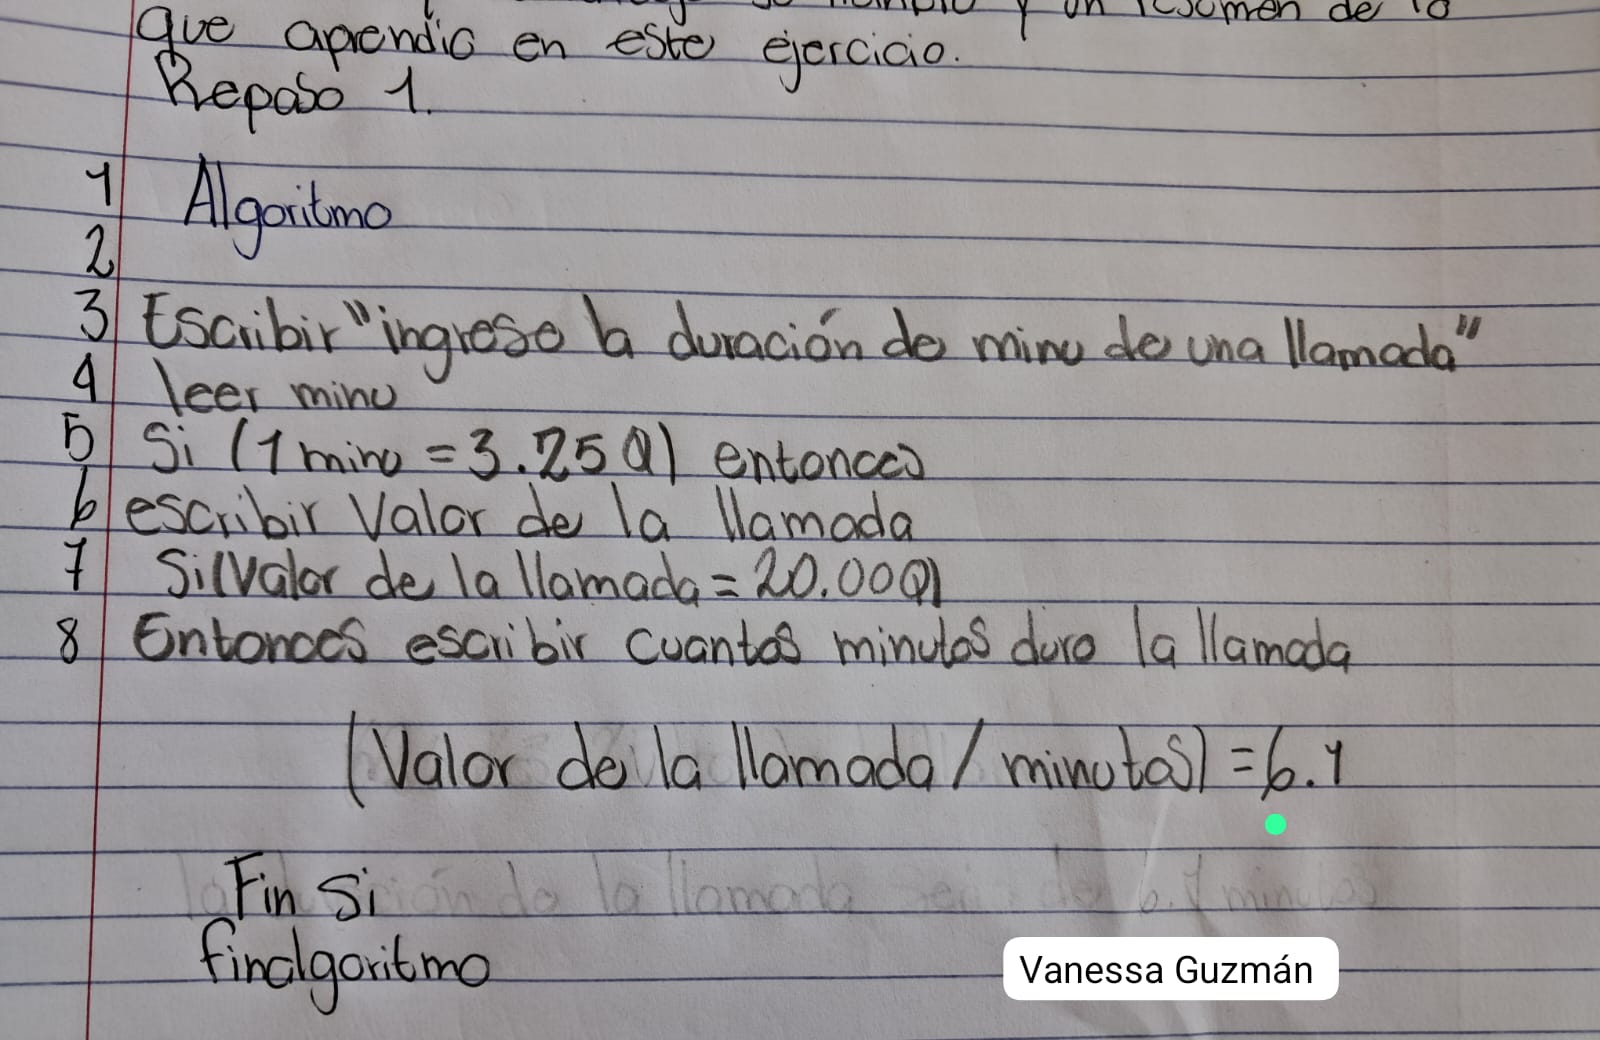 y un resumen de lo
que aprendio en este ejercicio.
Repaso 1.
1 Algoritmo
2
3 Escribir "ingrese la duración de minu de una llamada"
4 leer minu
5 Si (1 minu = 3.25 Q) entonces
6 escribir Valor de la llamada
7 Si(Valor de la llamada = 20.00Q)
8 Entonces escribir cuantos minutos duro la llamada
(Valor de la llamada / minutos) = 6.1
la duración de la llamada seria de 6.1 minutos
Fin si
finalgoritmo
Vanessa Guzmán